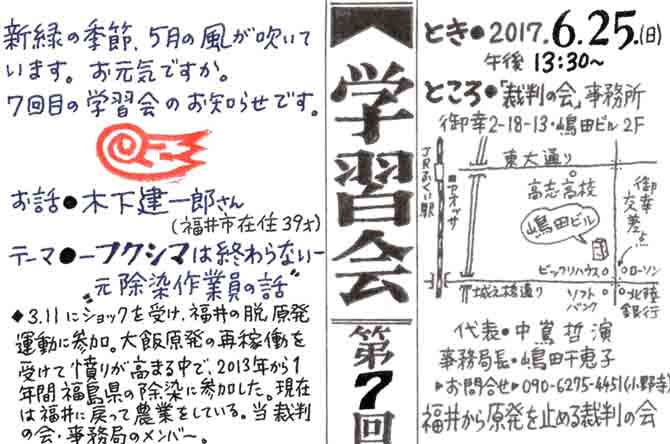 新緑の季節、5月の風が吹いて
います。お元気ですか。
7回目の学習会のお知らせです。
お話●木下建一郎さん
(福井市在住39才)
テーマ●ーフクシマは終わらないー
"元除染作業員の話"
◆3.11にショックを受け、福井の脱原発
運動に参加。大飯原発の再稼働を
受けて憤りが高まる中で、2013年から1
年間福島県の除染に参加した。現在
は福井に戻って農業をしている。当裁判
の会・事務局のメンバー。
学習会
第7回
とき●2017.6.25.(日)
午後 13:30〜
ところ●「裁判の会」事務所
御幸2-18-13・嶋田ビル2F
JRふくい駅
東大通り
アオッサ
高志高校
御幸交差点
嶋田ビル
ビックリハウス
ローソン
城之橋通り
ソフトバンク
北陸銀行
代表・中嶌哲演
事務局長・嶋田千恵子
▶お問合せ▶090-6275-4451(小野寺)
福井から原発を止める裁判の会